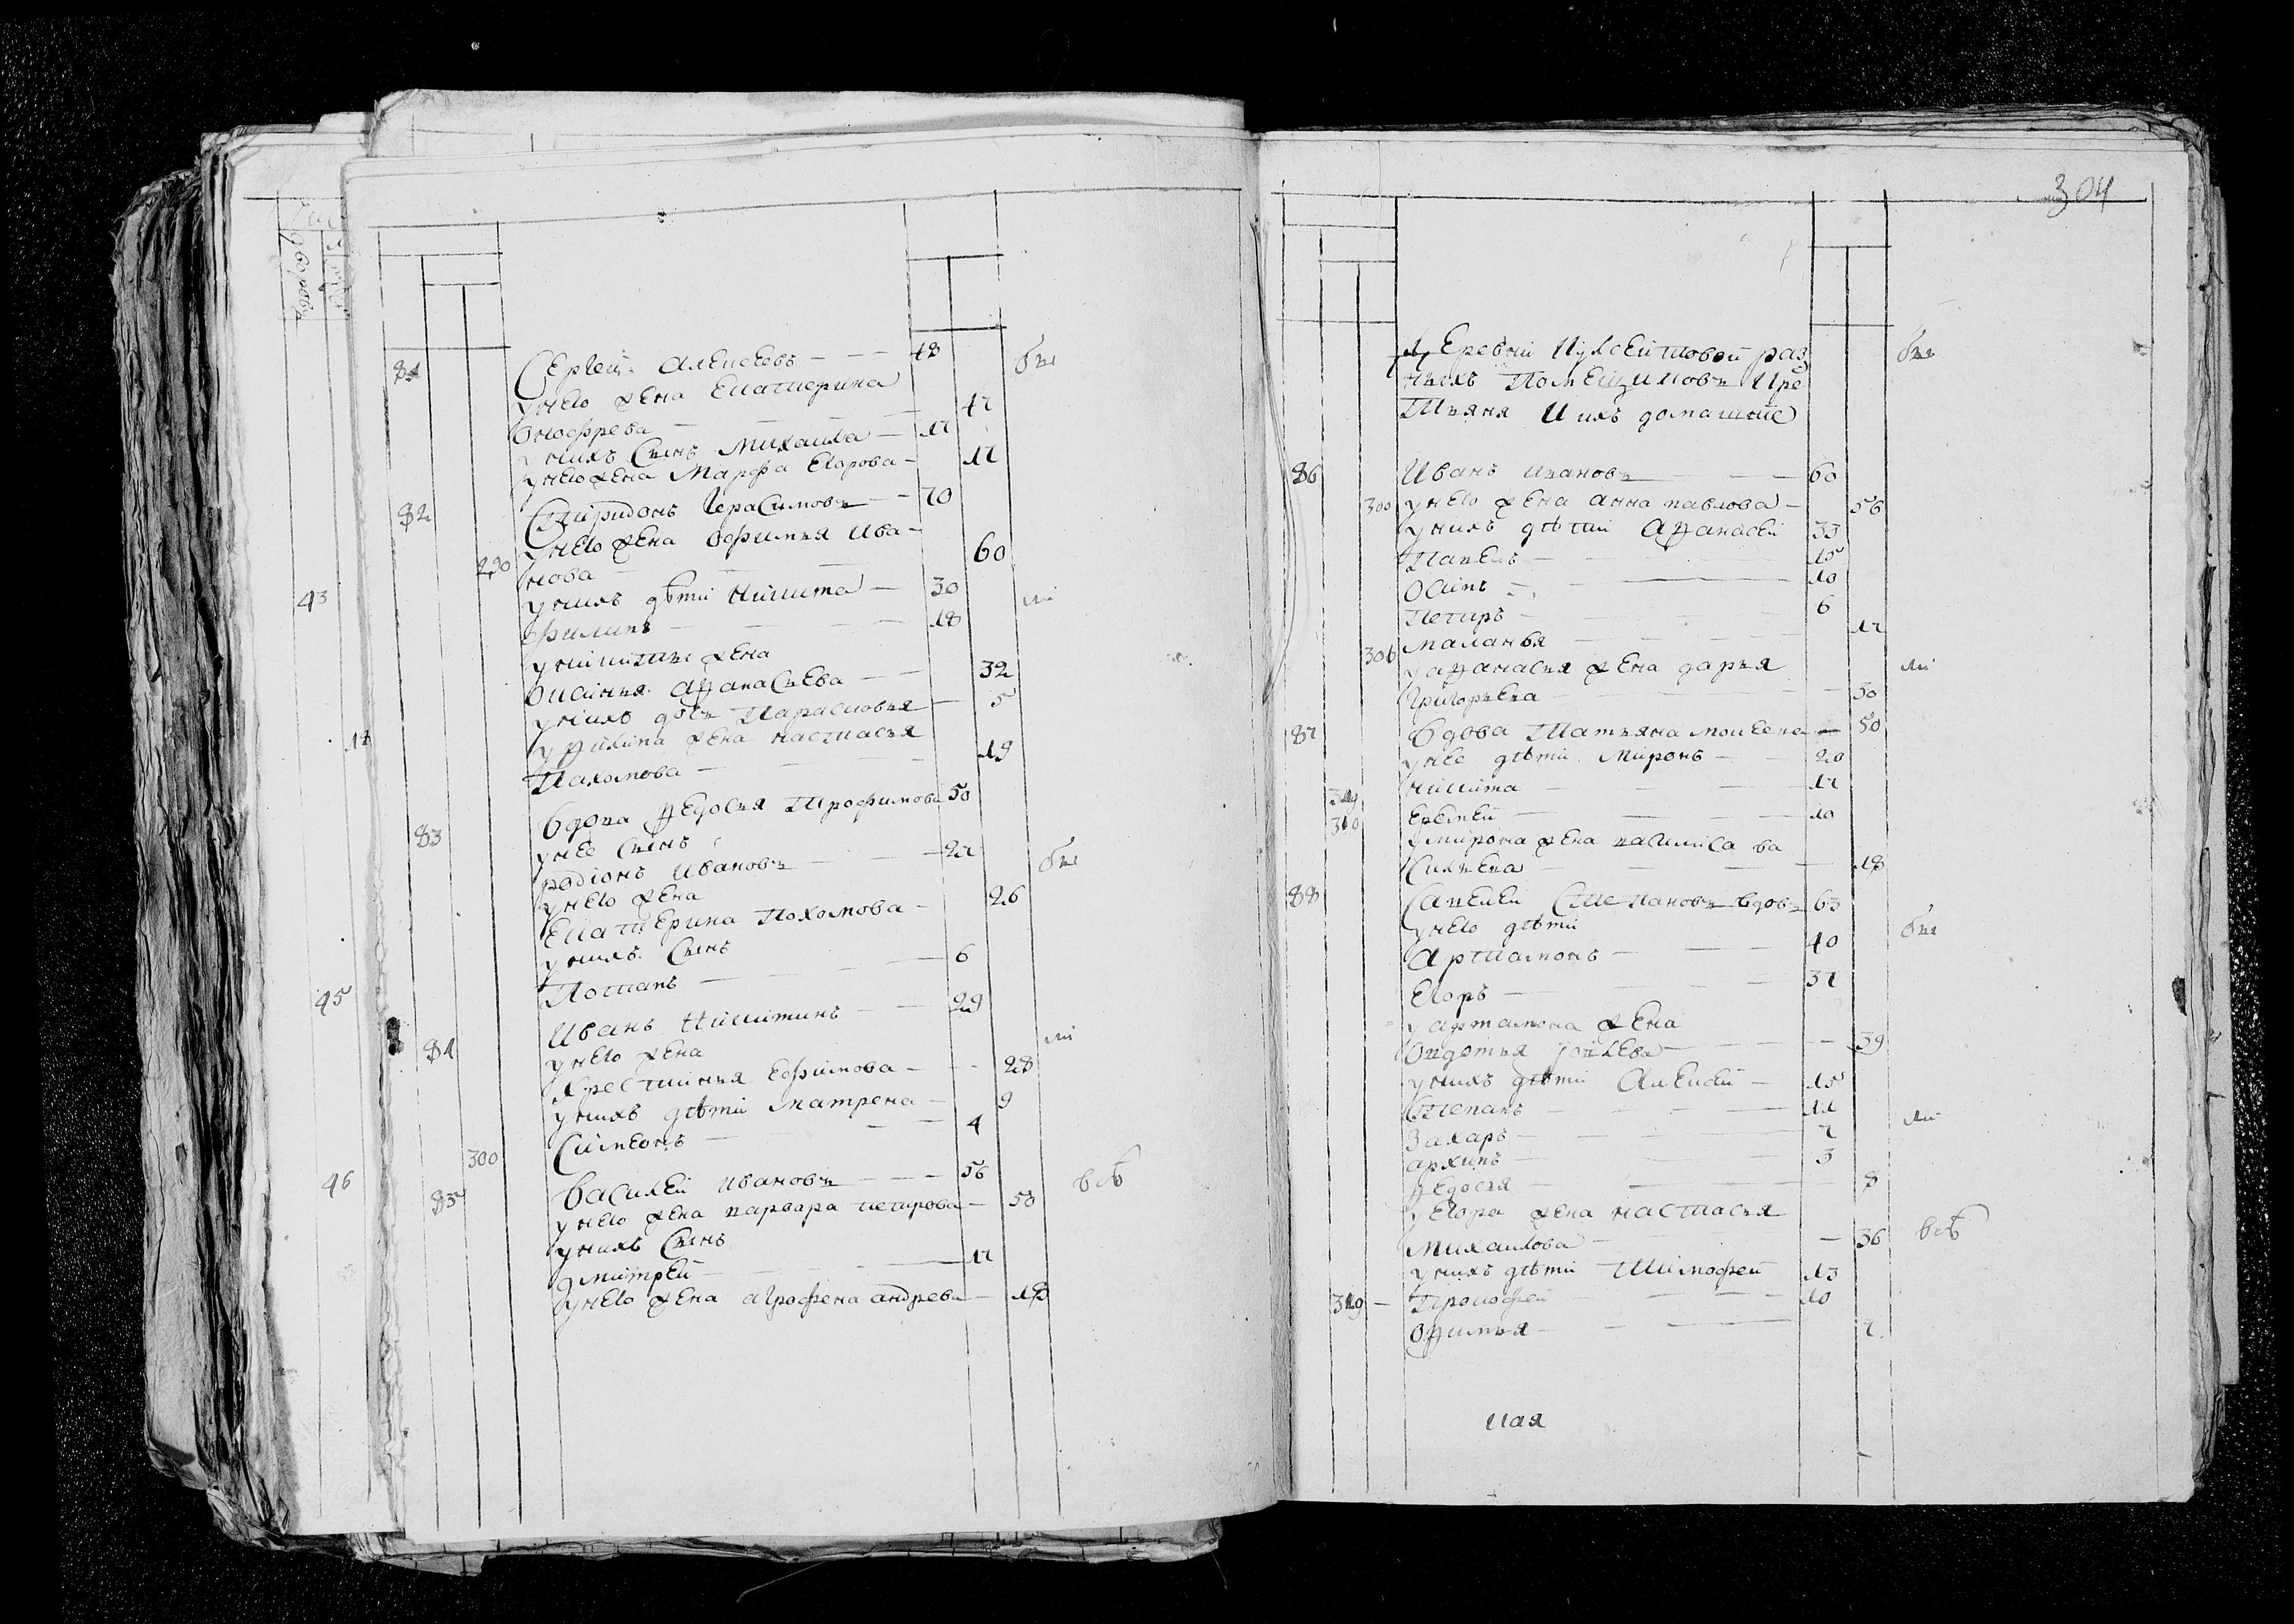 304
81 Сергей Алексеевъ 48 бы
у него жена Екатерина
Онофрева 47
у нихъ сынъ Михаила 17
у него жена Марфа Егорова 17
82 Спиридонъ Герасимовъ 70
у него жена Офимья Ива
нова 60
у нихъ дѣти Никита 30 ли
Филипъ 18
у Никиты жена
Оксинья Афанасьева 32
у нихъ дочь Парасковья 5
у Филипа жена Настасья
Пахомова 19
83 вдова Федосья Трофимова 50
у нее сынъ
Родионъ Ивановъ 27 бы
у него жена
Екатерина Похомова 26
у нихъ сынъ
Потапъ 6
84 Иванъ Никитинъ 29 ли
у него жена
Хрестинья Ефимова 28
у нихъ дѣти Матрена 9
Симеонъ 4
300
85 Василей Ивановъ 56 всѣ
у него жена Варвара Петрова 50
у нихъ сынъ
Дмитрей 17
у него жена Агрофена Андрева 18
43
45
46
Деревни раз
ныхъ помещиковъ кре
стьяня и ихъ домашние
бы
86 Иванъ Ивановъ 60
300 у него жена Анна Павлова 56
у нихъ дѣти Афанасей 33
Павелъ 15
Осипъ 10
Петръ 6
306 Маланья 17
у Афанасья жена Дарья ли
Григорьева 30
87 вдова Татьяна Мосеева 50
у нее дѣти Миронъ 20
Никита 17
310 Еремей 10
у Мирона жена Василиса Ва
сильева 18
88 Савелей Степановъ вдовъ 63
у него дѣти бы
Артамонъ 40
Егоръ 37
у Артамона жена
Овдотья 39
у нихъ дѣти Алексей 15
Степанъ 11 ли
Захаръ 7
Архипъ 3
Федосья 8
у Егора жена Настасья
Михаилова 36 всѣ
у нихъ дѣти Тимофей 13
319 Прокофей 10
Офимья 7
кая